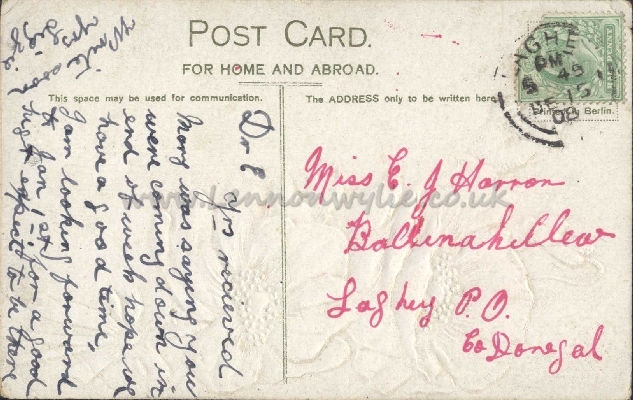 POST CARD.
FOR HOME AND ABROAD.
This space may be used for communication.
The ADDRESS only to be written here.
Berlin.
HALFPENNY
PM
5 45
DE 15
08
Dr E
yrs recieved
Mary was saying you
were coming down in
end of week hope we
have a good time,
I am looking forward
to Jan 1st for a good
night expect to be there
Write soon
yrs
Miss E. J Harron
Ballinahillew
Laghey P.O.
Co Donegal
www.Lennonwylie.co.uk